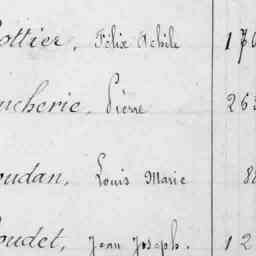 ottier, Félix Achile 176
ucherie, Pierre 263
oudan, Louis Marie 8
oudet, Jean Joseph. 12